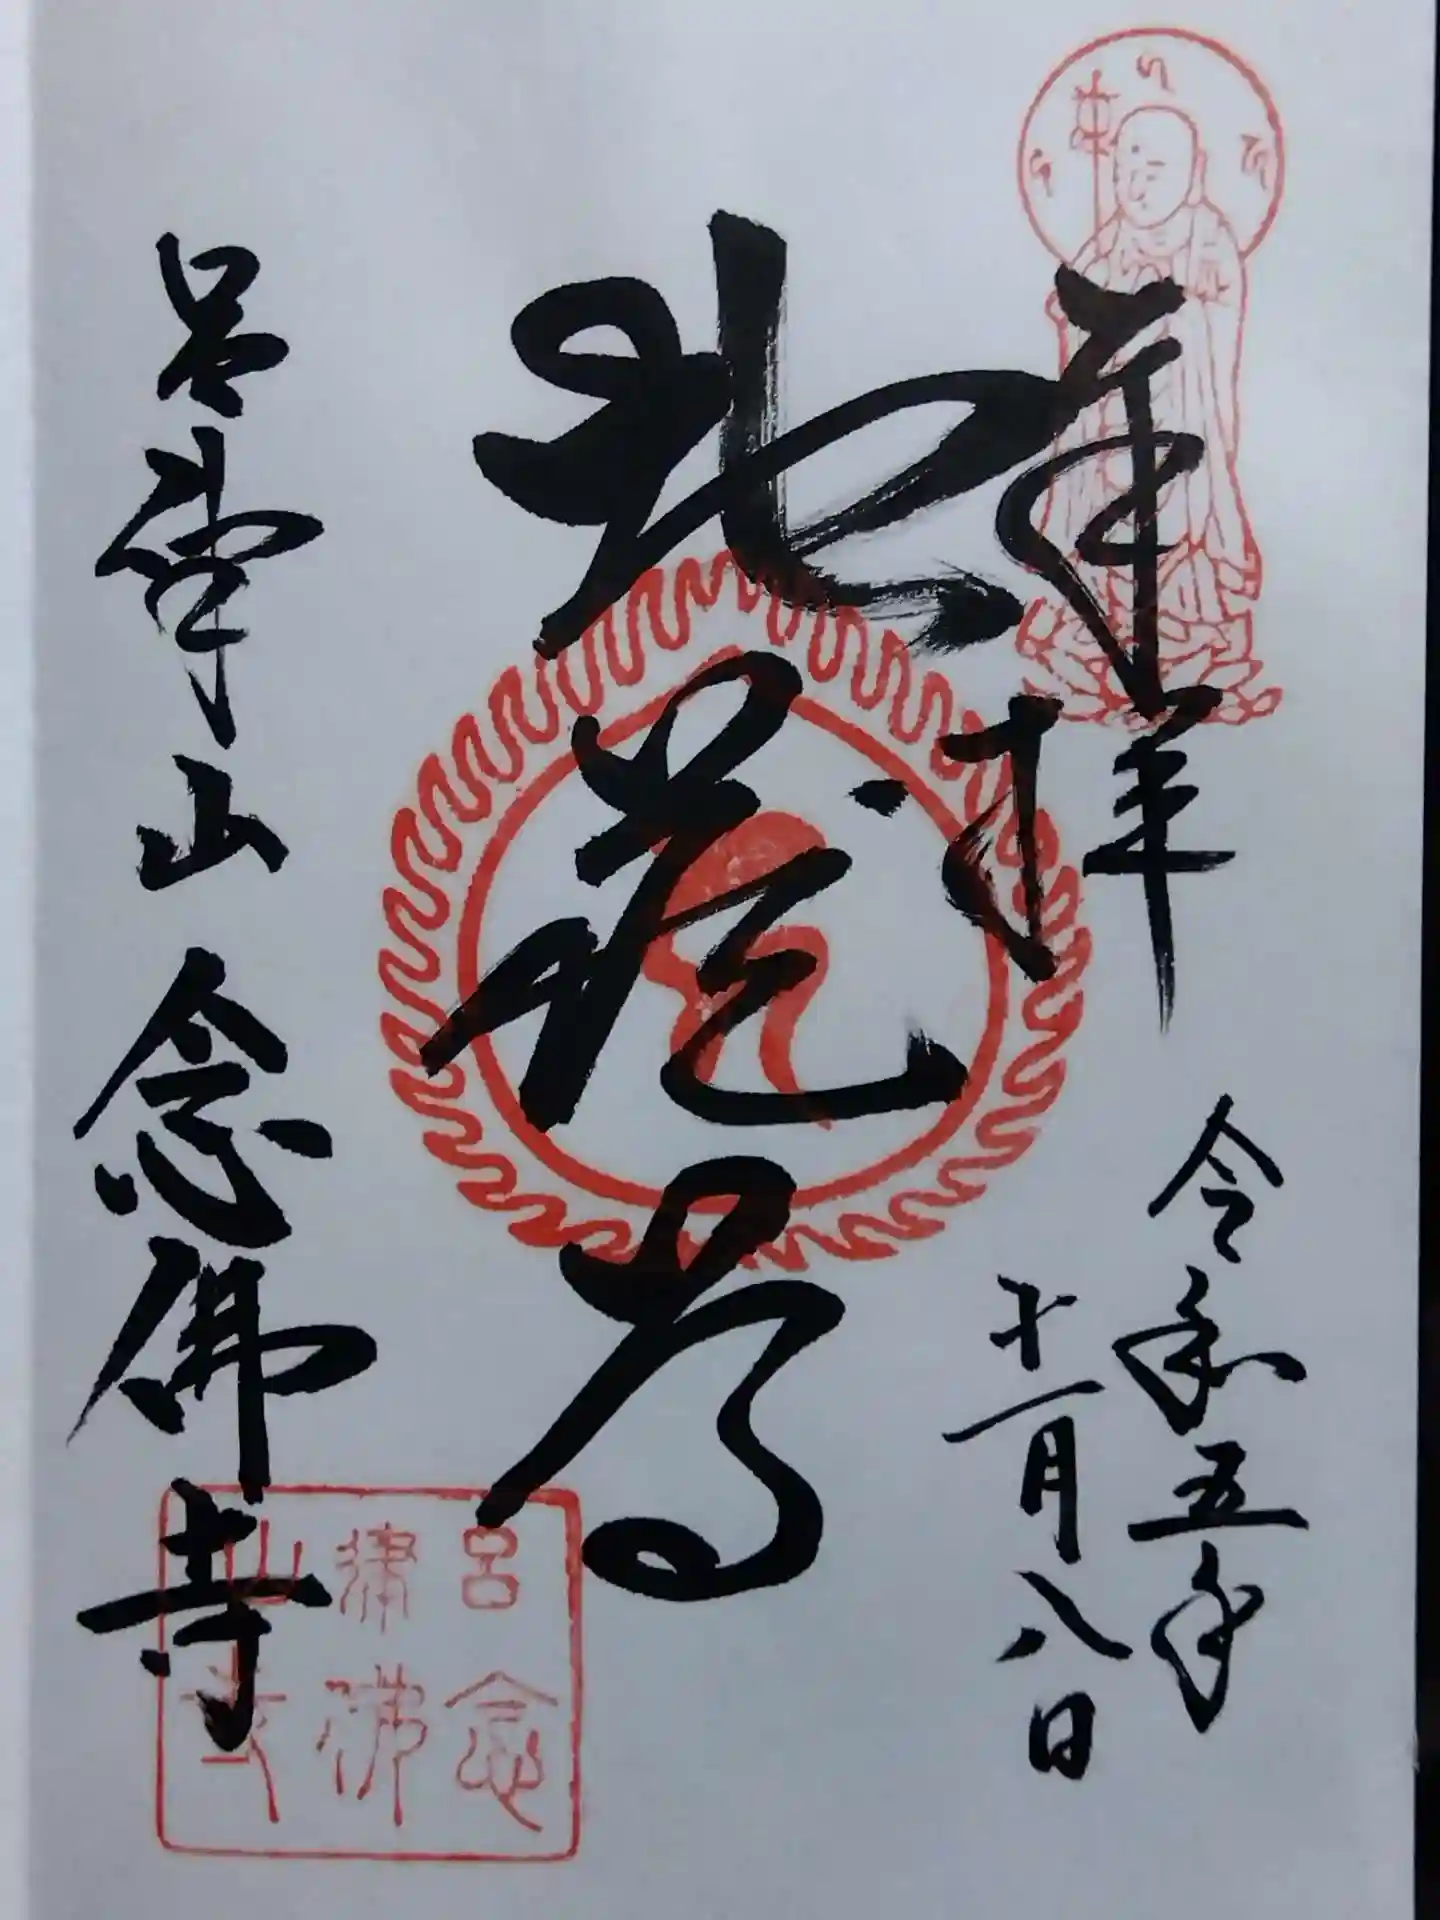 奉拝
令和五年
十一月八日
地蔵尊
呂律山 念佛寺
呂律山
念佛寺